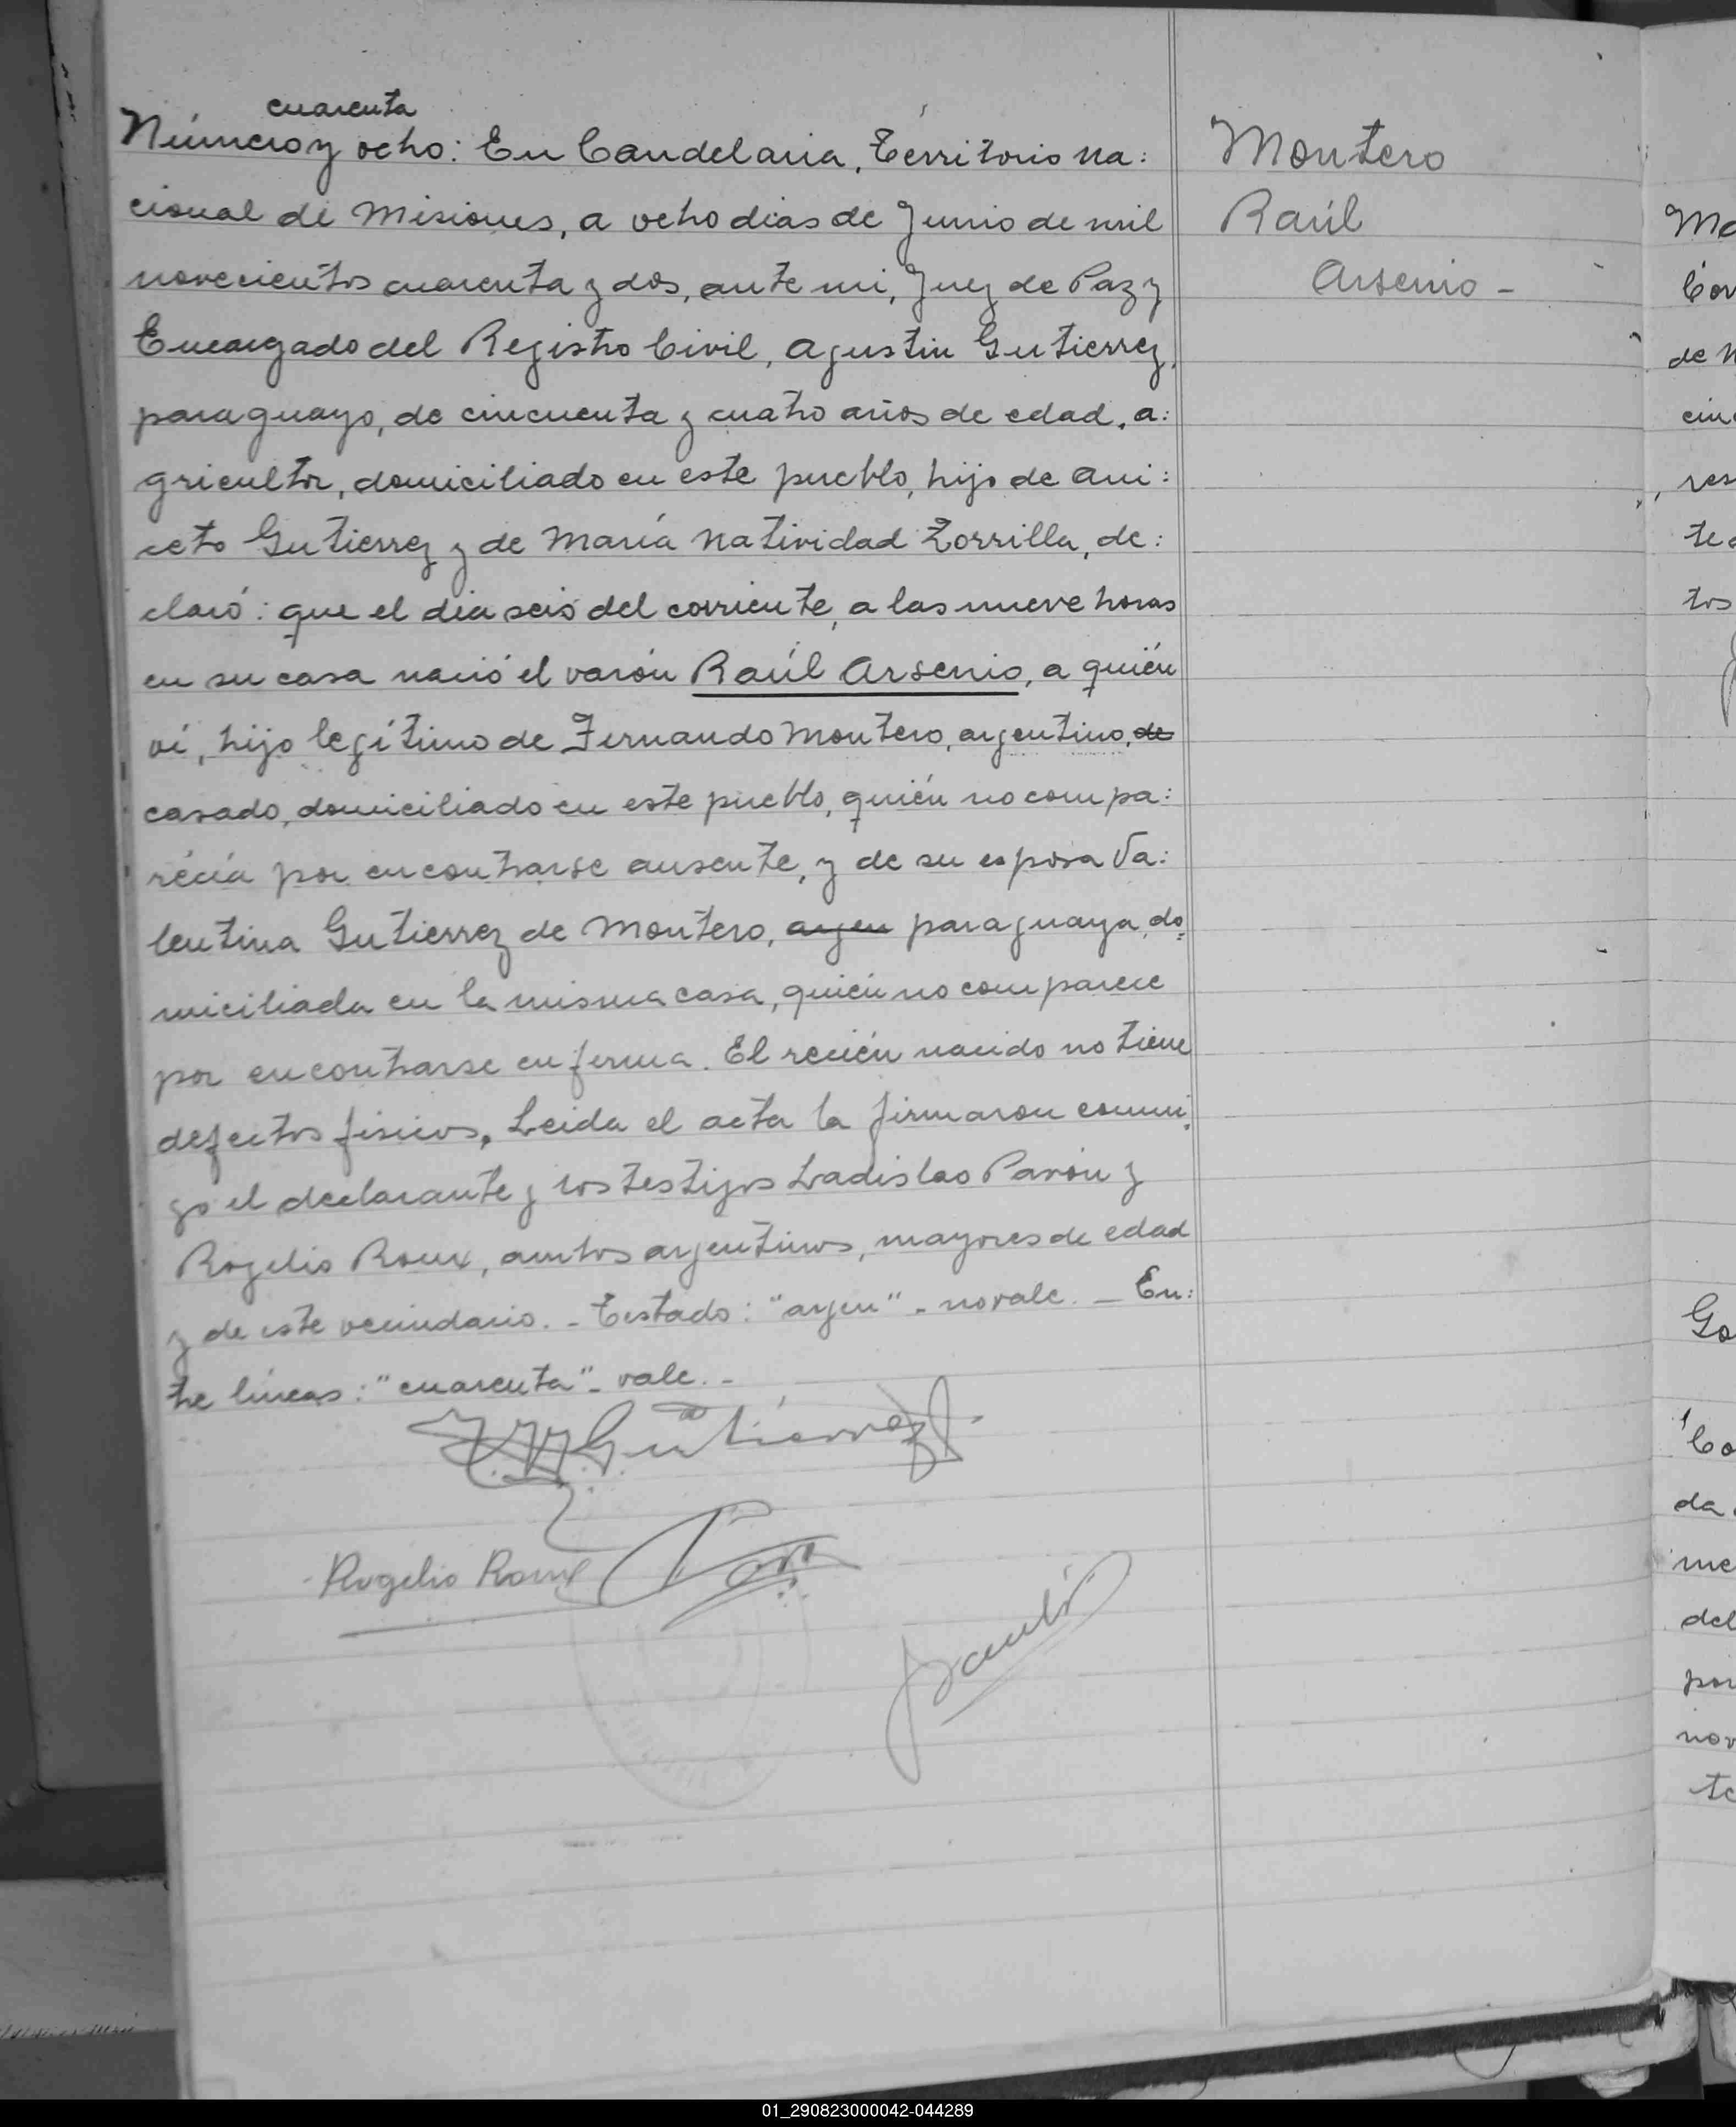 cuarenta
Número y ocho: En Candelaria, Territorio na:
cional de Misiones, a ocho dias de Junio de mil
novecientos cuarenta y dos, ante mi, Juez de Paz y
Encargado del Registro Civil, Agustin Gutierrez,
paraguayo, de cincuenta y cuatro años de edad, a:
gricultor, domiciliado en este pueblo, hijo de Ani:
ceto Gutierrez y de María Natividad Zorrilla, de:
claró: que el dia seis del corriente, a las nueve horas
en su casa nació el varón Raúl Arsenio, a quién
ví, hijo legítimo de Fernando Montero, argentino, de
casado, domiciliado en este pueblo, quién no compa:
recía por encontrarse ausente, y de su esposa Va:
lentina Gutierrez de Montero, argen paraguaya, do
miciliada en la misma casa, quién no comparece
por encontrarse enferma. El recién nacido no tiene
defectos físicos. Leida el acta la firmaron conmi:
go el declarante y los testigos Ladislao Pavón y
Rogelio Roux, ambos argentinos, mayores de edad
y de este vecindario. - Testado: "argen" - no vale. - En:
tre líneas: "cuarenta" - vale. -
Gutierrez
Rogelio Roux
Montero
Raúl
Arsenio -
Ma
Cor
de N
cin
res
te
tos
Go
Co
da
me
del
por
nov
te
01_290823000042-044289